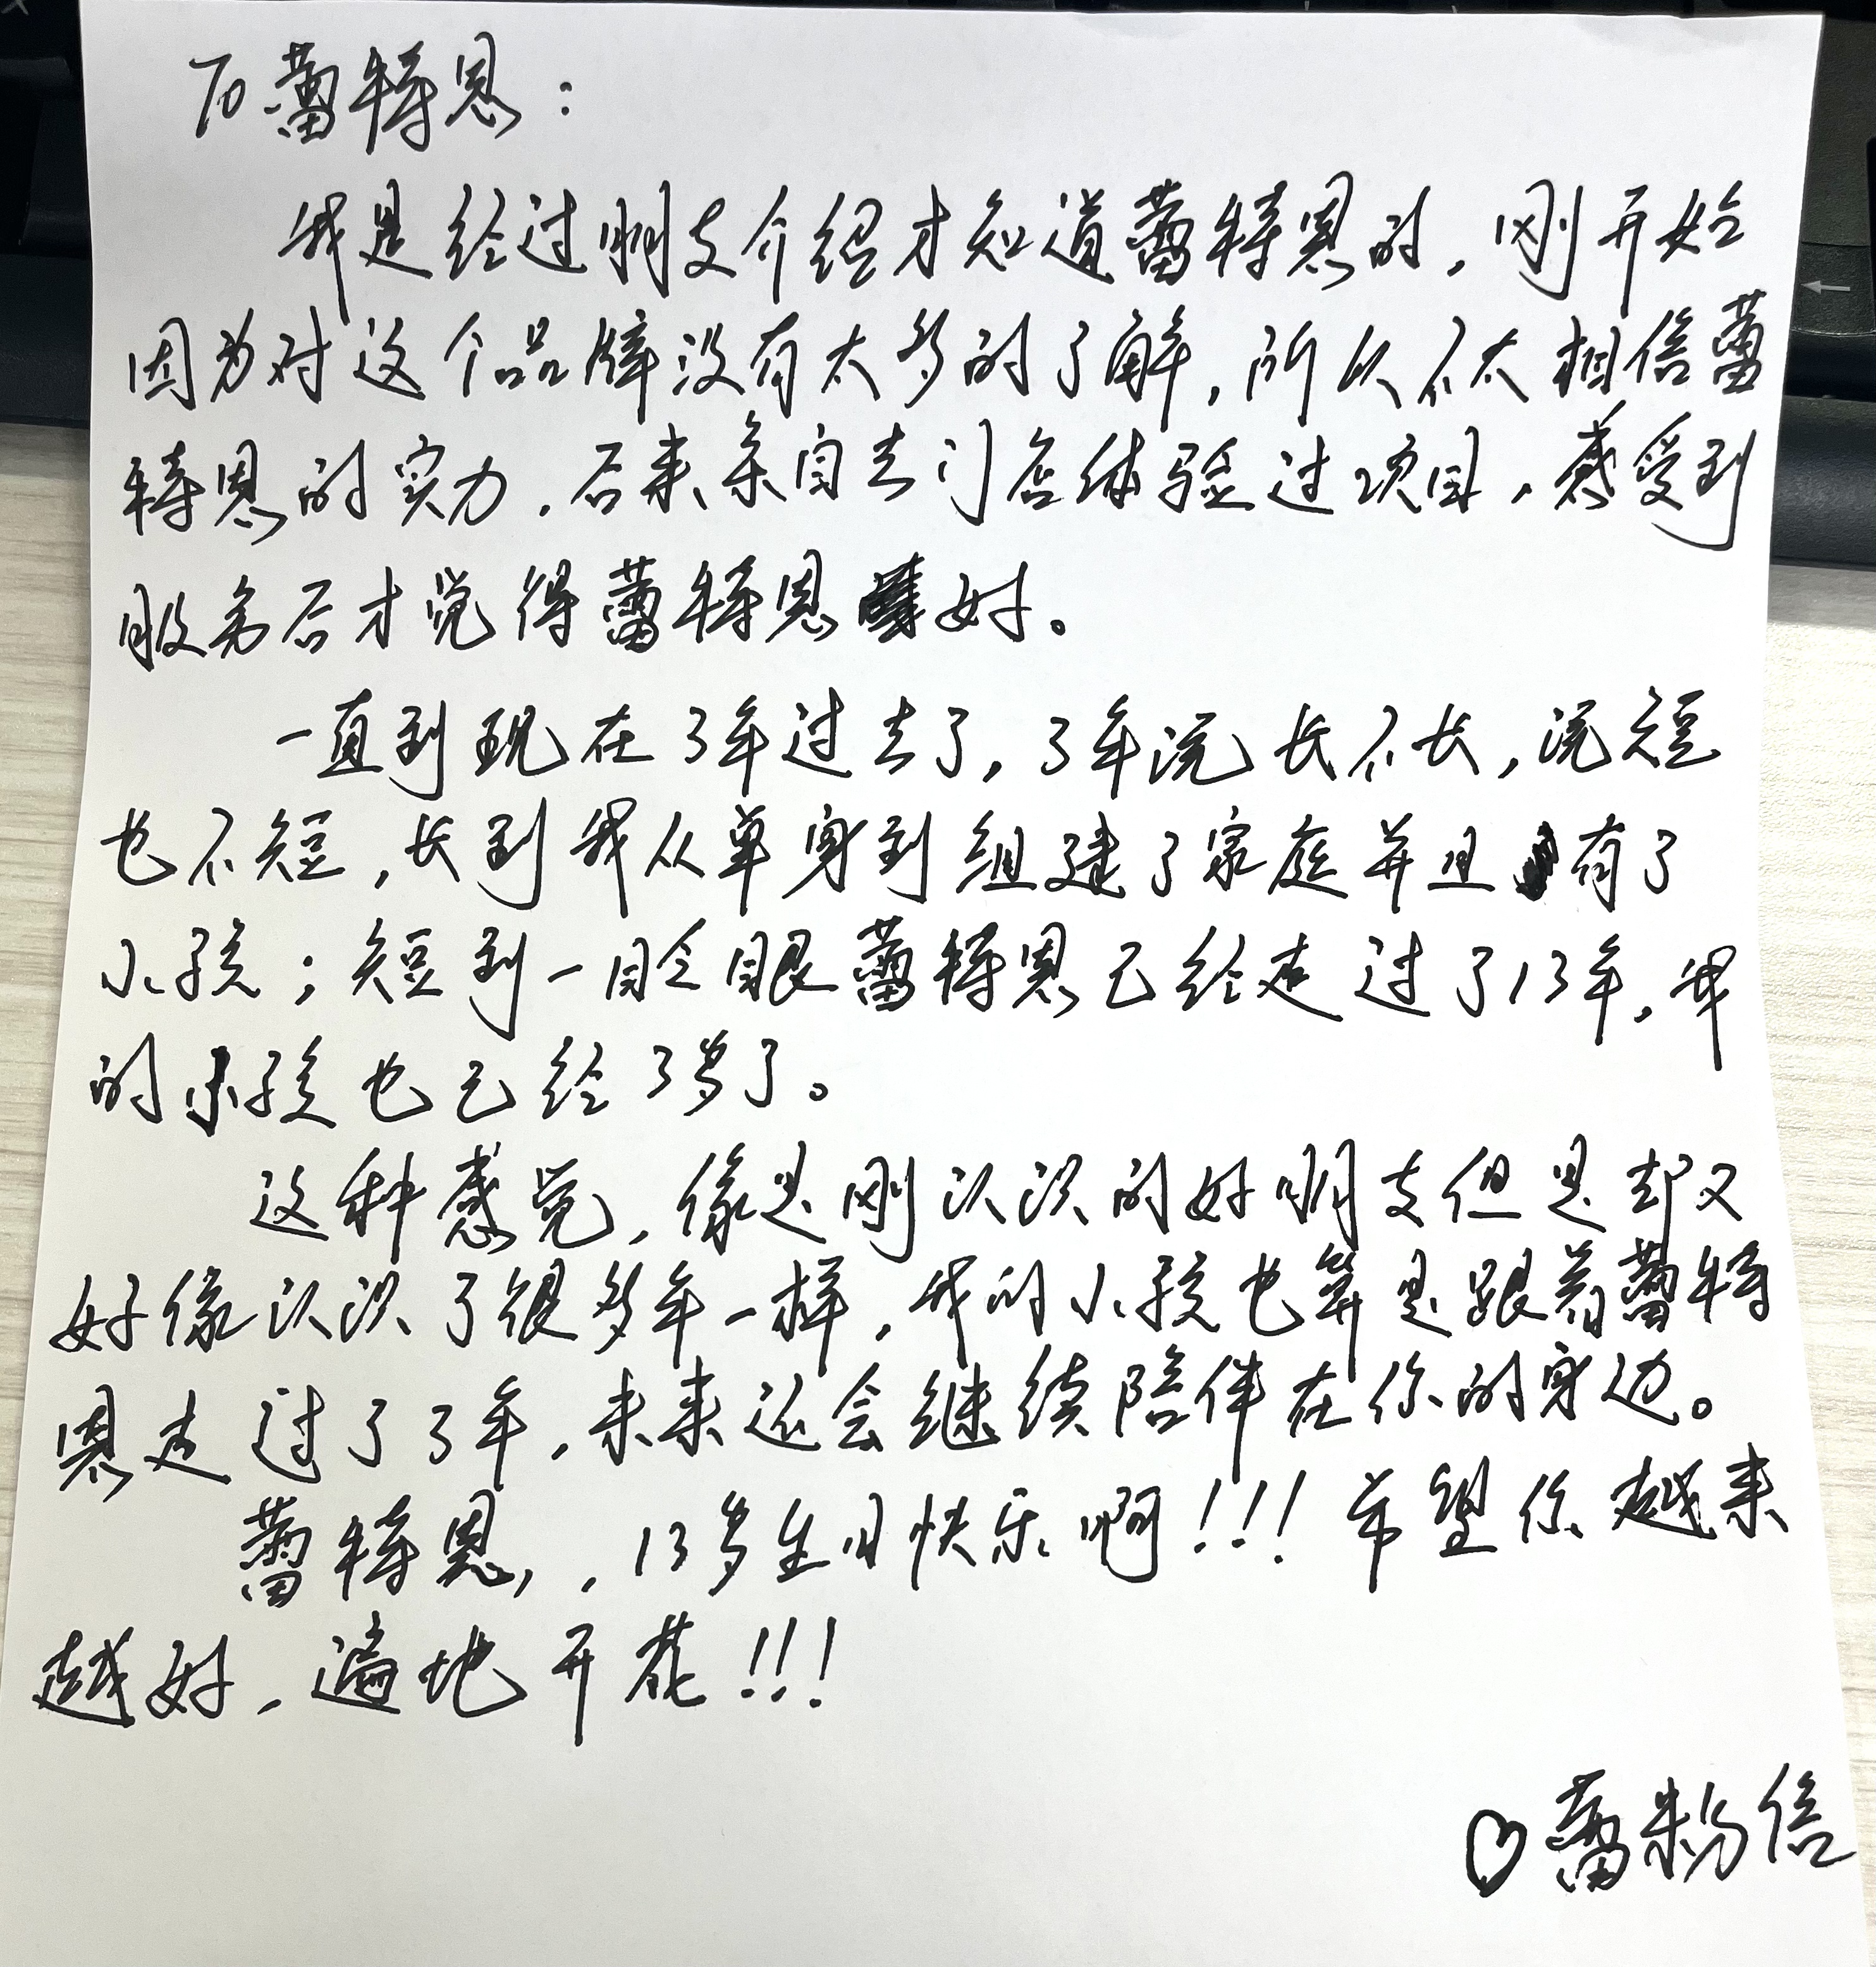 To蕾特恩：
我是经过朋友介绍才知道蕾特恩的，刚开始
因为对这个品牌没有太多的了解，所以不太相信蕾
特恩的实力，后来亲自去门店体验过项目，感受到
服务后才觉得蕾特恩好。
一直到现在3年过去了，3年说长不长，说短
也不短，长到我从单身到组建了家庭并且有了
小孩；短到一眨眼蕾特恩已经走过了13年，我
的小孩也已经3岁了。
这种感觉，像是刚认识的好朋友但是却又
好像认识了很多年一样，我的小孩也算是跟着蕾特
恩走过了3年，未来还会继续陪伴在你的身边。
蕾特恩，，13岁生日快乐啊！！！希望你越来
越好，遍地开花！！！
♡蕾粉信